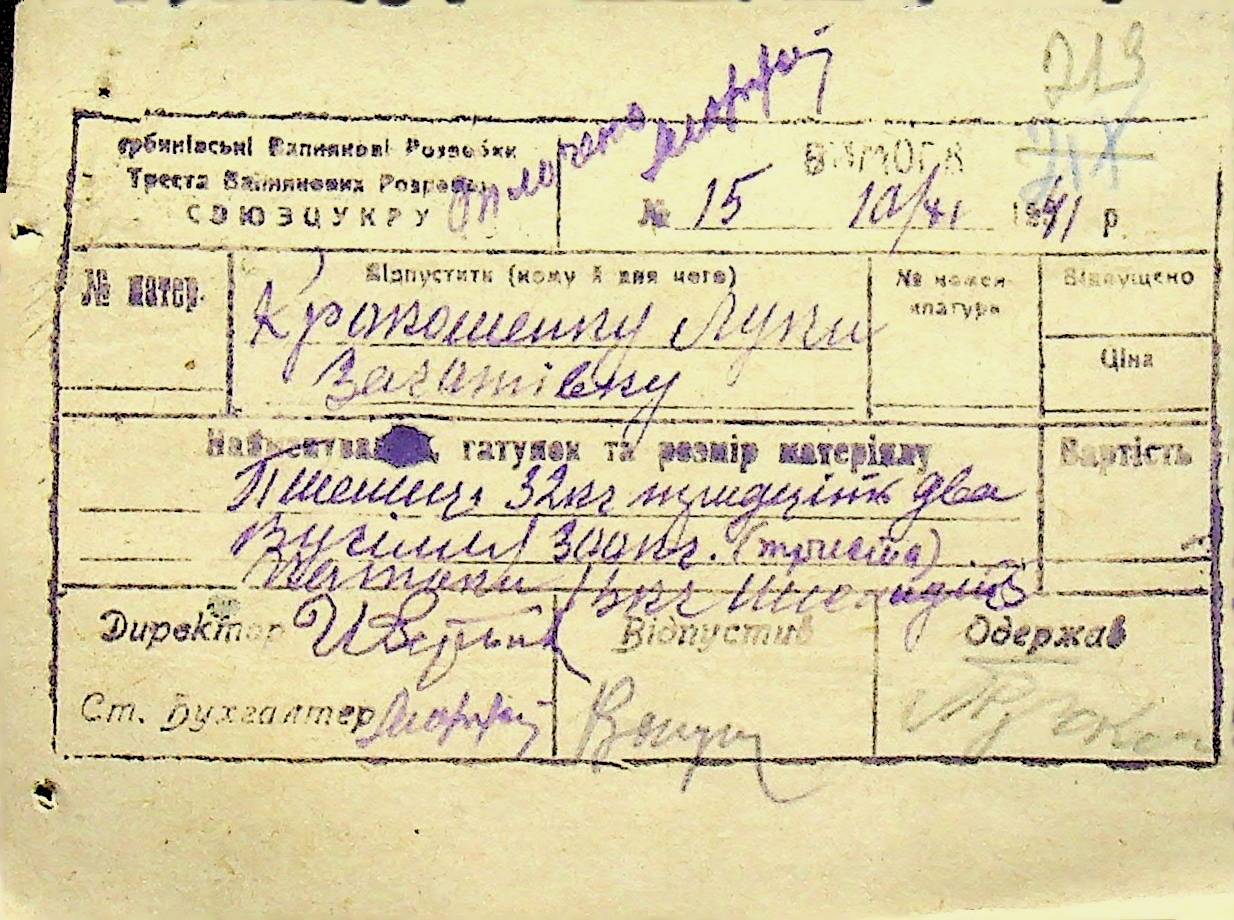 213
Вапнякові Розробки
Треста Вапнякових Розробок
СОЮЗЦУКРУ
Оплочено
ВИМОГА
№ 15 10/XI 1941 р.
№ матер.
Відпустити (кому й для чого)
№ номен-
клатури
Відпущено
Ціна
Крокошенку Луки
Зачатівку
Найменування, гатунок та розмір матеріялу
Вартість
Пшениці 32 кг тридцять два
300 кг. (триста)
Директор
Відпустив
Одержав
Ст. Бухгалтер